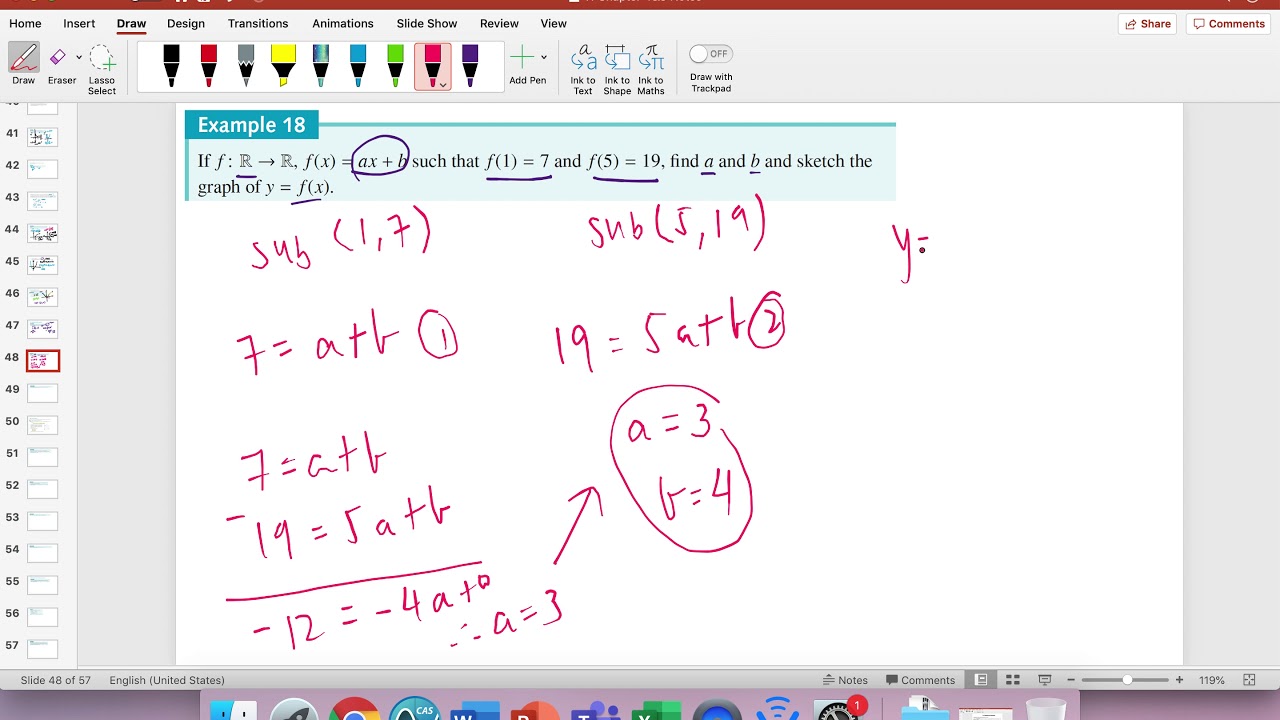 Home Insert Draw Design Transitions Animations Slide Show Review View Share Comments
Draw Eraser Lasso Select Add Pen Ink to Text Ink to Shape Ink to Maths OFF Draw with Trackpad
41
42
43
44
45
46
47
48
49
50
51
52
53
54
55
56
57
Example 18
If f: ℝ → ℝ, f(x) = ax + b such that f(1) = 7 and f(5) = 19, find a and b and sketch the
graph of y = f(x).
sub (1,7)
sub (5,19)
y=
7 = a+b ①
19 = 5a+b ②
7 = a+b
- 19 = 5a+b
-12 = -4a+0
∴ a=3
a = 3
b = 4
Slide 48 of 57 English (United States) Notes Comments 119%
CAS
1